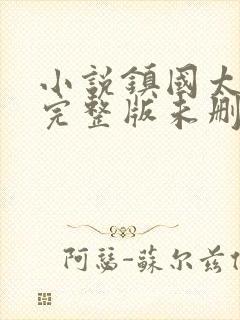 小説鎮國大
完整版未刪
阿瑟-蘇尔兹